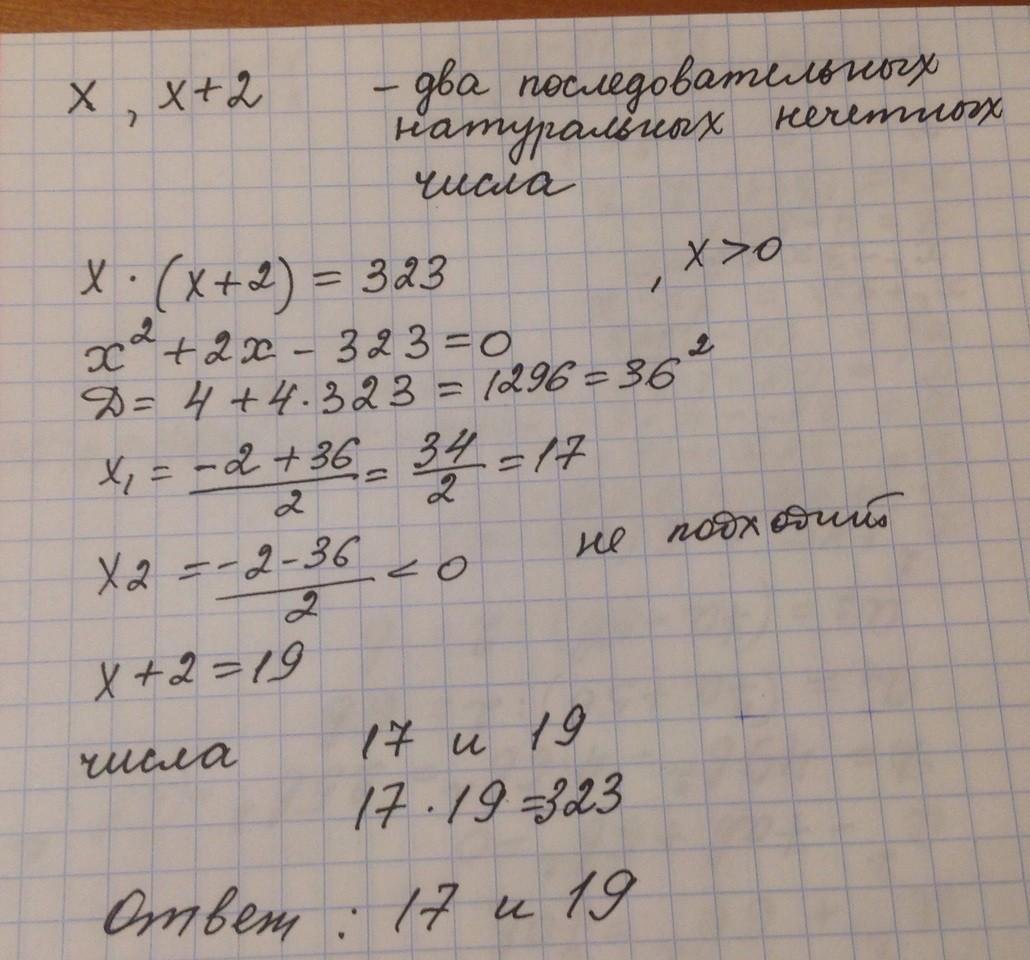 x , x+2 – два последовательных
натуральных нечетных
числа
x · (x+2) = 323 , x>0
x² + 2x - 323 = 0
D = 4 + 4·323 = 1296 = 36²
x₁ = (-2+36)/2 = 34/2 = 17
x2 = (-2-36)/2 < 0 не подходит
x+2 = 19
числа 17 и 19
17·19=323
Ответ : 17 и 19